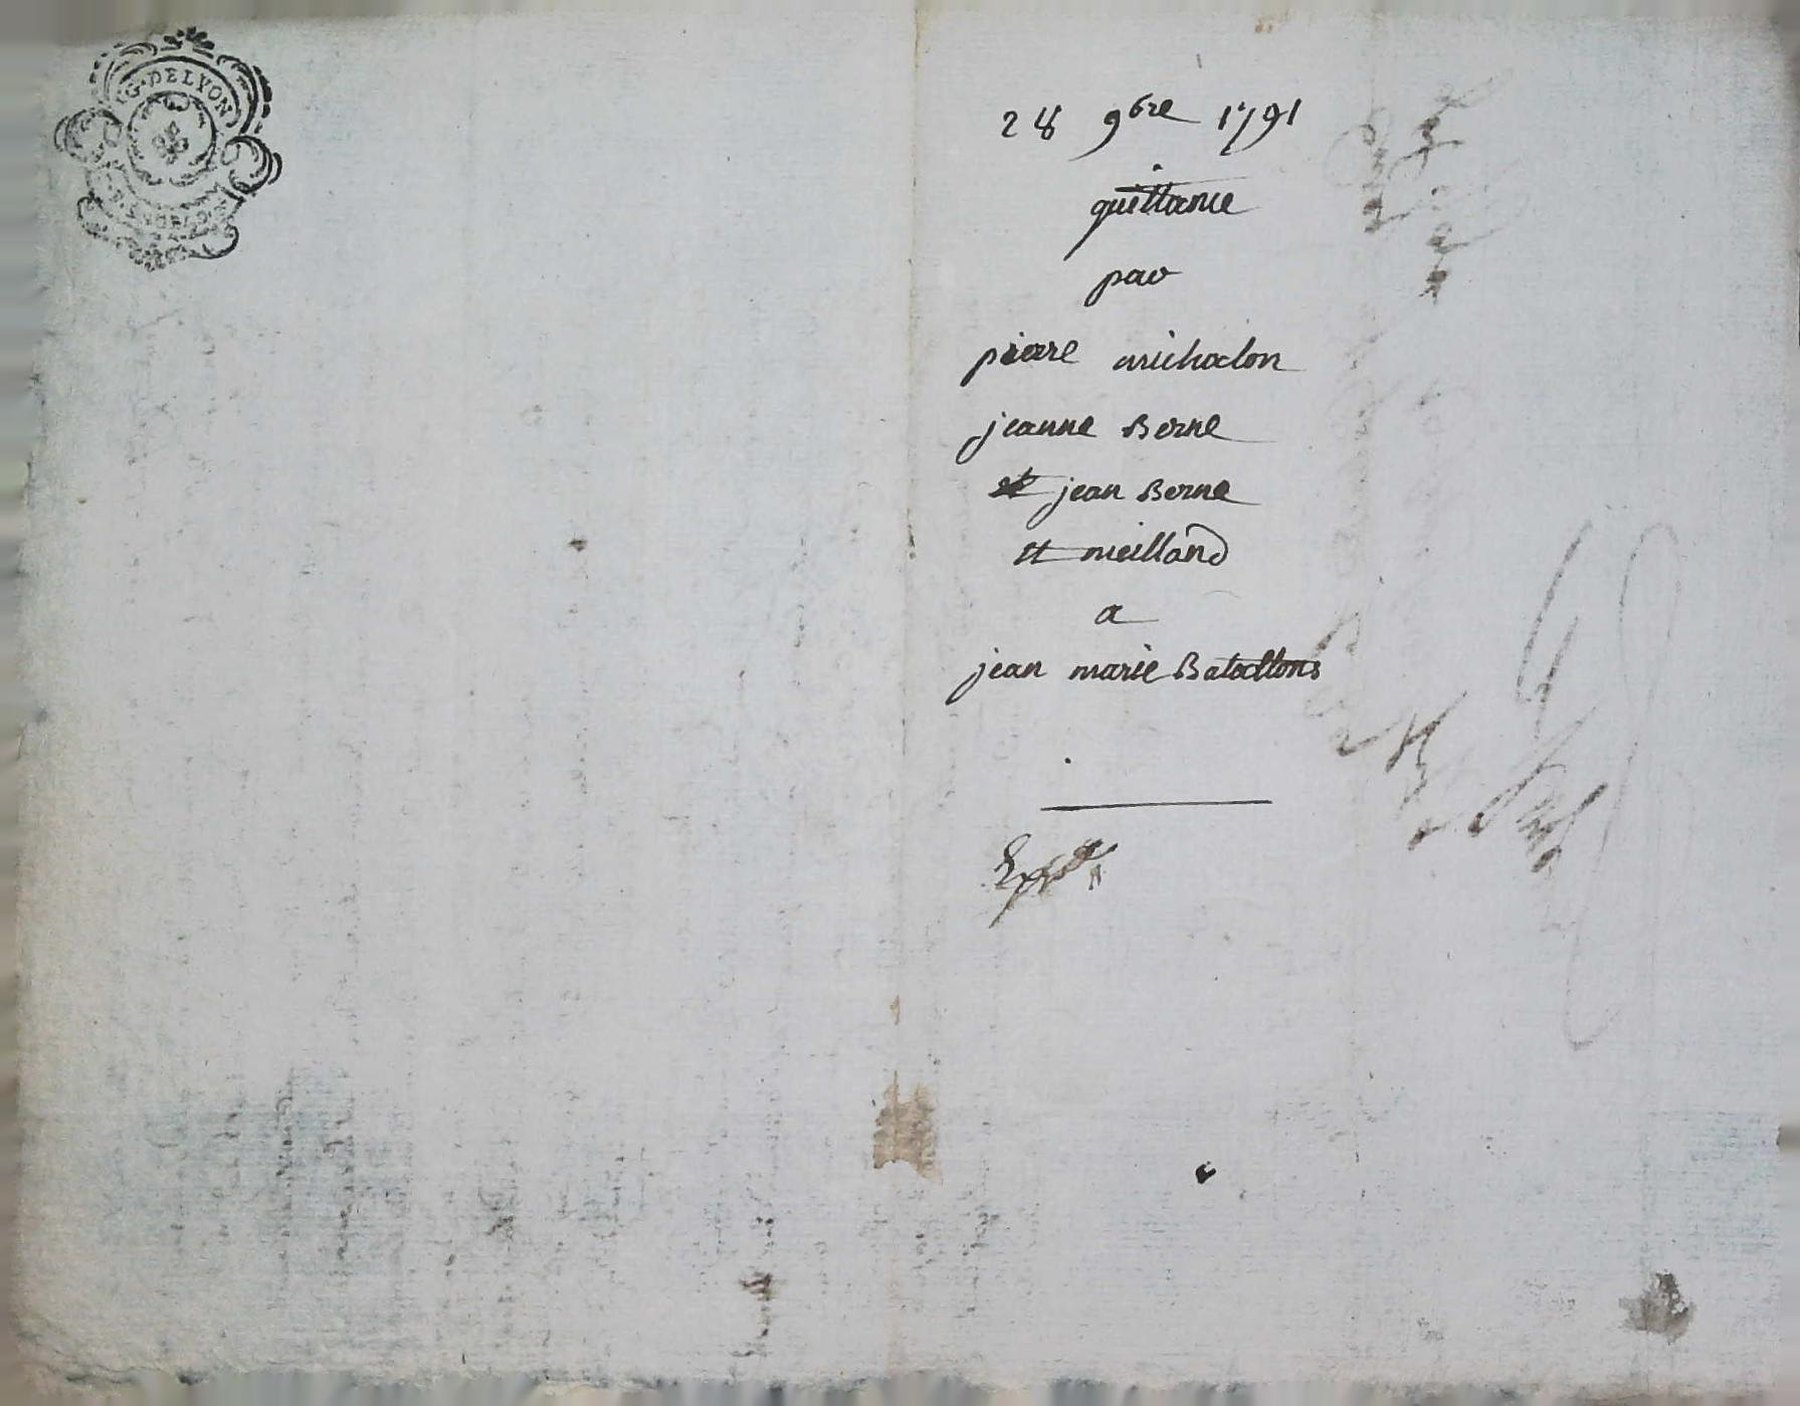 G. DE LYON
28 9bre 1791
quittance
par
pierre michalon
jeanne Berne
et jean Berne
et meilland
a
jean marie Bataillons
Expée